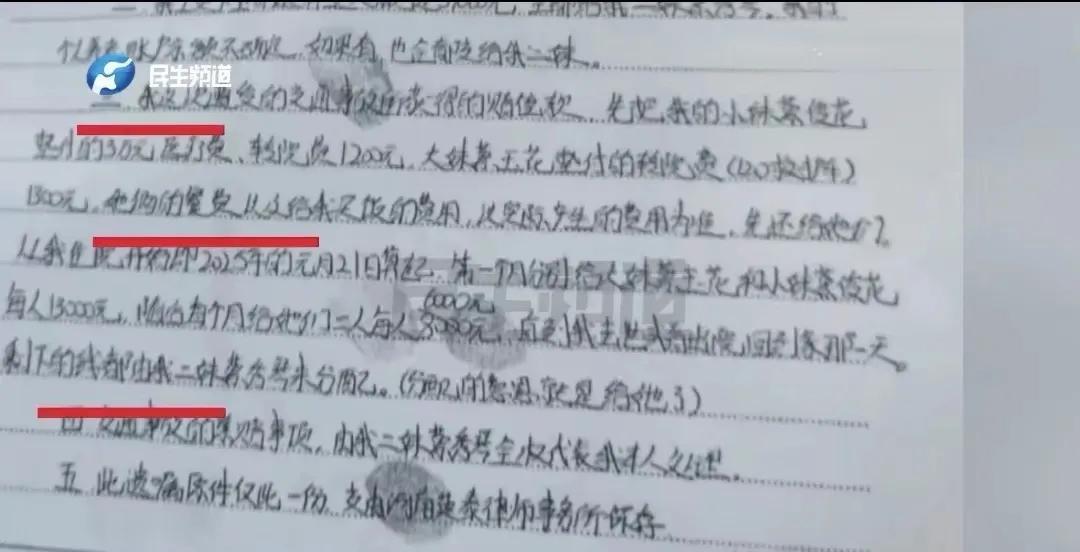 全部给我二妹
个人存账户余额不确定，如果有，也全部归给我二妹。
民生频道
三 我这次遭受的交通事故所获得的赔偿款 先把我的小妹蔡俊花
垫付的3万元医疗费、转院费1200元，大妹蔡玉花垫付的转院费（120救护车）
1300元，她俩的餐费以及给我买饭的费用，以实际产生的费用为准，先还给她们。
从我住院开始即2025年的元月21日算起，第一个月分别给大妹蔡玉花和小妹蔡俊花
6000元
每人13000元，随后每个月给她们二人每人3000元，直到我去世或者出院，回到家那一天。
剩下的钱都由我二妹蔡秀琴来分配。（分配的意思就是给她了）
四 交通事故的索赔事项，由我二妹蔡秀琴全权代表我本人处理。
五 此遗嘱原件仅此一份 交由河南建泰律师事务所保存
民生频道